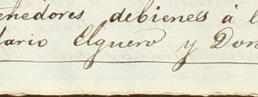 enedores debienes á l
dario Elguero y Don